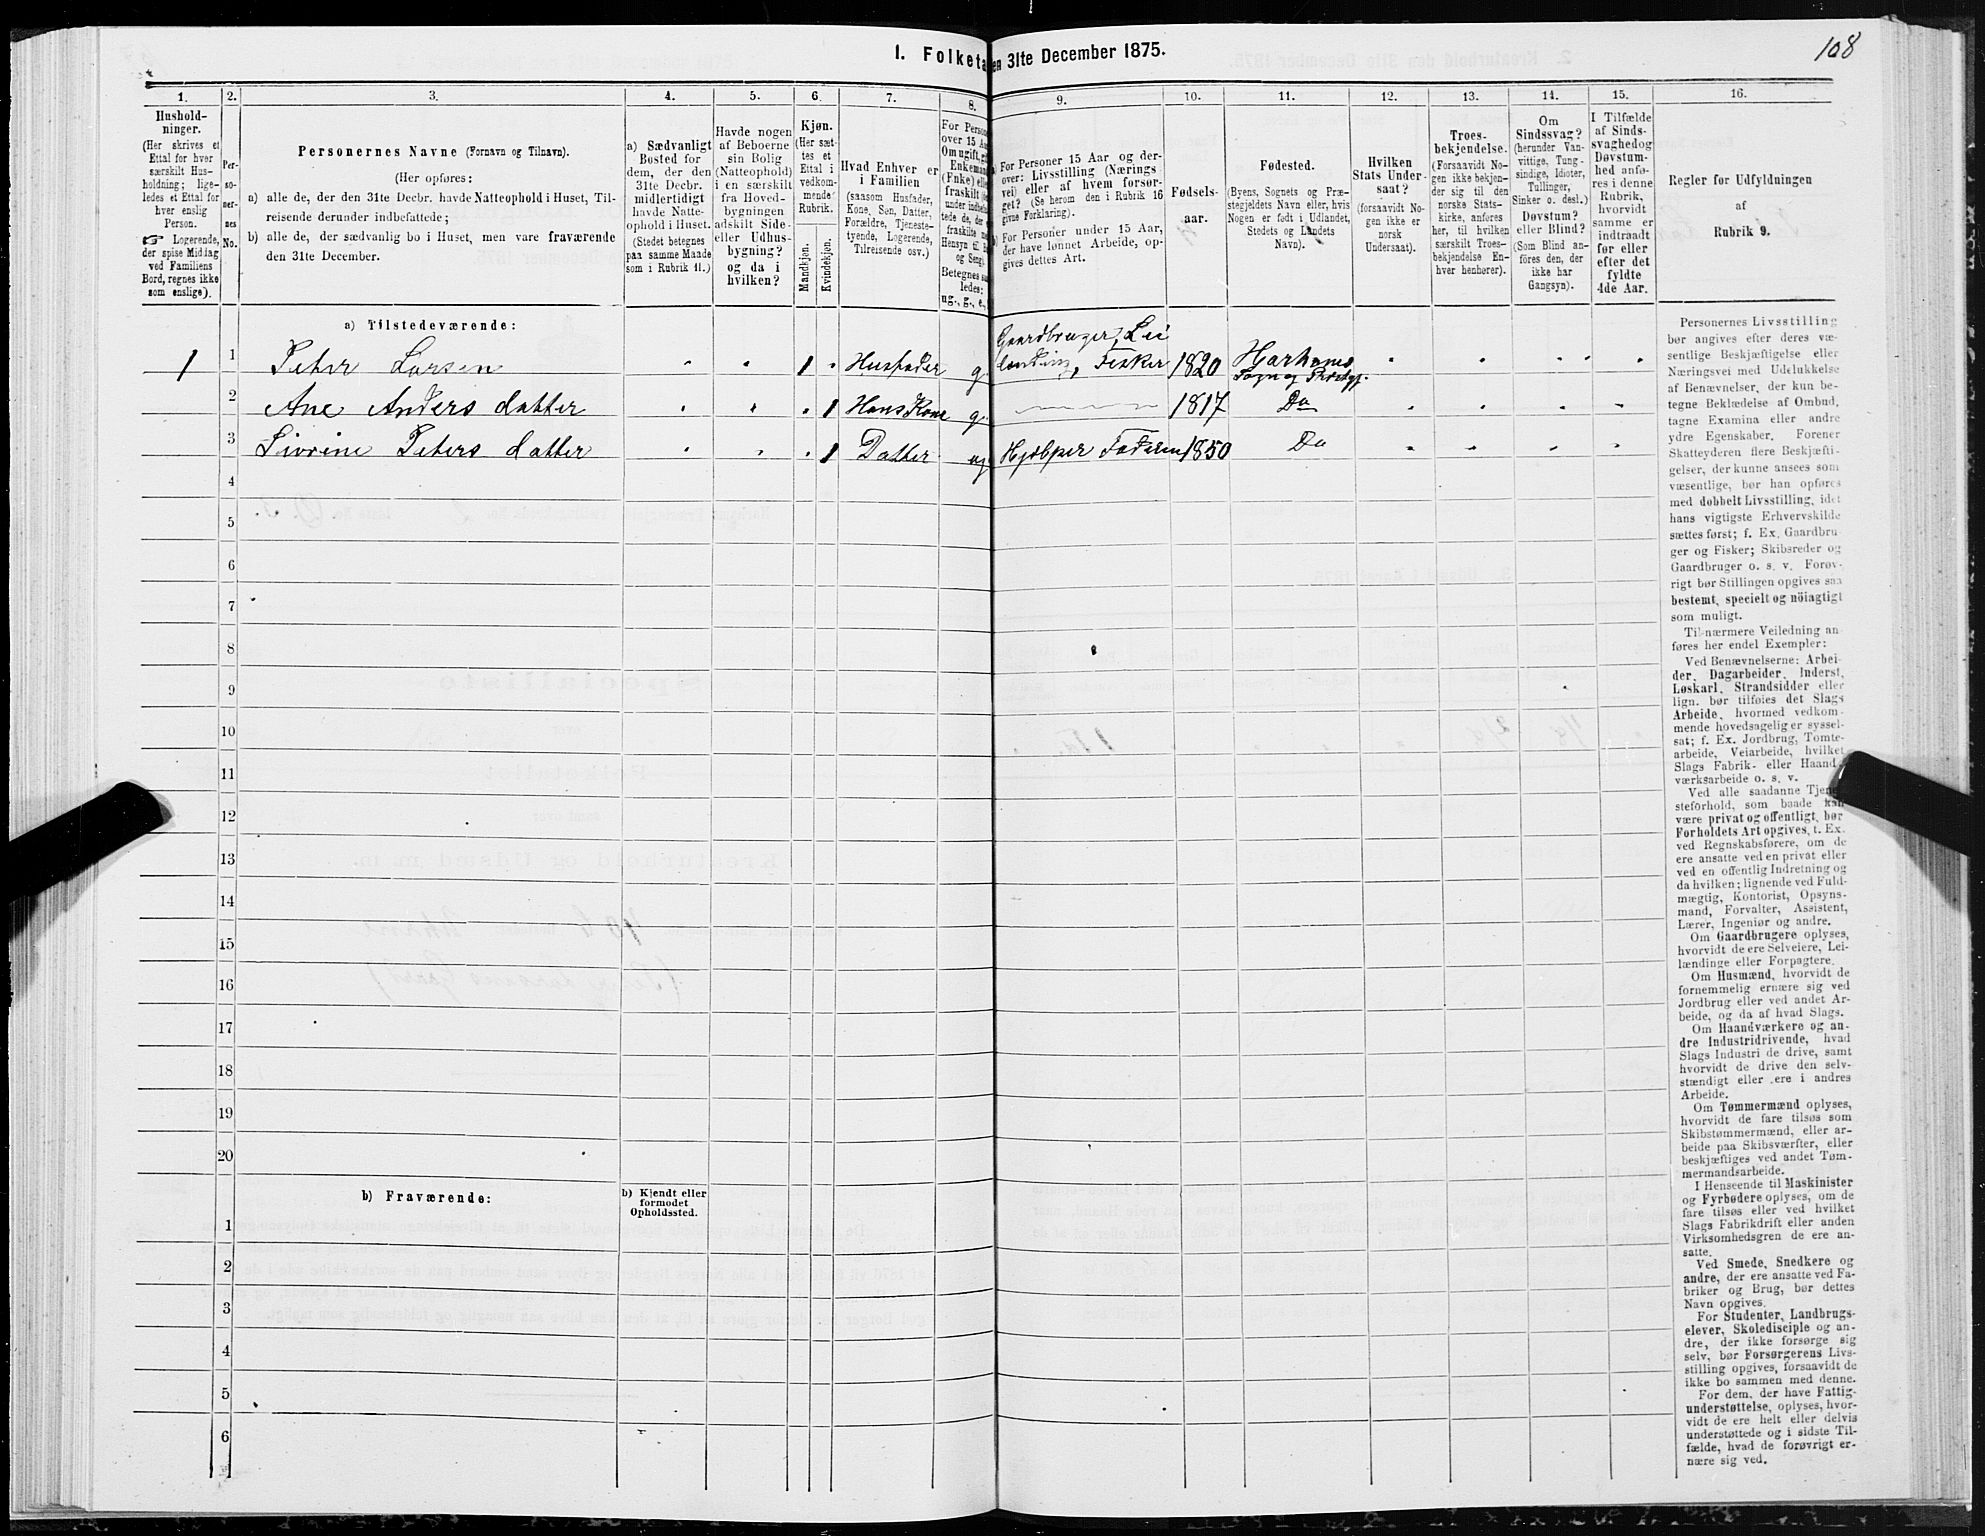 108
1. Folketa en 31te December 1875.
1. 2. 3. 4. 5. 6. 7. 8. 9. 10. 11. 12. 13. 14. 15. 16.
Hushold-
ninger.
(Her skrives et
Ettal for hver
særskilt Hus-
holdning; lige-
ledes et Ettal for
hver enslig
Person.
☞ Logerende,
der spise Middag
ved Familiens
Bord, regnes ikke
som enslige).
Per-
so-
ner-
nes
No.
Personernes Navne (Fornavn og Tilnavn).
(Her opføres:
a) alle de, der den 31te Decbr. havde Natteophold i Huset, Til-
reisende derunder indbefattede;
b) alle de, der sædvanlig bo i Huset, men vare fraværende
den 31te December.
a) Sædvanligt
Bosted for
dem, der den
31te Decbr.
midlertidigt
havde Natte-
ophold i Huset.
(Stedet betegnes
paa samme Maade
som i Rubrik 11.)
Havde nogen
af Beboerne
sin Bolig
(Natteophold)
i en særskilt
fra Hoved-
bygningen
adskilt Side-
eller Udhus-
bygning?
og da i
hvilken?
Kjøn.
(Her sæt-
tes et
Ettal i
vedkom-
mende
Rubrik.
Mandkjøn.
Kvindekjøn.
Hvad Enhver er
i Familien
(saasom Husfader,
Kone, Søn, Datter,
Forældre, Tjeneste-
tyende, Logerende,
Tilreisende osv.)
For Person
over 15 Aar
Om ugift, g
Enkemand
(Enke) ell
fraskilt
under indbe
tede de, der
fraskilte
Hensyn til B
og Seng).
Betegnes sa
ledes:
ug., g., e.,
For Personer 15 Aar og der-
over: Livsstilling (Nærings
vei) eller af hvem forsør-
get? (Se herom den i Rubrik 16
givne Forklaring).
For Personer under 15 Aar,
der have lønnet Arbeide, op-
gives dettes Art.
Fødsels-
aar.
Fødested.
(Byens, Sognets og Præ-
stegjeldets Navn eller, hvis
Nogen er født i Udlandet,
Stedets og Landets
Navn).
Hvilken
Stats Under-
saat?
(forsaavidt No-
gen ikke er
norsk
Undersaat).
Troes-
bekjendelse.
(Forsaavidt No-
gen ikke bekjen-
der sig til den
norske Stats-
kirke, anføres
her, til hvilken
særskilt Troes-
bekjendelse En-
hver henhører).
Om
Sindssvag?
(herunder Van-
vittige, Tung-
sindige, Idioter,
Tullinger,
Sinker o. desl.)
Døvstum?
eller Blind?
(Som Blind an-
føres den, der
ikke har
Gangsyn).
I Tilfælde
af Sinds-
svaghed og
Døvstum-
hed anfø-
res i denne
Rubrik,
hvorvidt
samme er
indtraadt
før eller
efter det
fyldte
4de Aar.
Regler før Udfyldningen
af
Rubrik 9.
a) Tilstedeværende:
1 1 Peter Larsen 1 Husfader g. Gaardbruger, Lei
lending, Fisker 1820 Harhams
Sogn og Prestgj.
2 Ane Anders datter 1 Hans Kone g. 1817 Do
3 Sivrine Peters datter 1 Datter ug Hjelper Faderen 1850 Do
4
5
6
7
8
9
10
11
12
13
14
15
16
17
18
19
20
b) Fraværende:
b) Kjendt eller
formodet
Opholdssted.
1
2
3
4
5
6
Personernes Livsstilling
bør angives efter deres væ-
sentlige Beskjæftigelse eller
Næringsvei med Udelukkelse
af Benævnelser, der kun be-
tegne Beklædelse af Ombud,
tagne Examina eller andre
ydre Egenskaber. Forener
Skatteyderen flere Beskjæfti-
gelser, der kunne ansees som
væsentlige, bør han opføres
med dobbelt Livsstilling, idet
hans vigtigste Erhvervskilde
sættes først; f. Ex. Gaardbru-
ger og Fisker; Skibsreder og
Gaardbruger o. s. v. Forøv-
rigt bør Stillingen opgives saa
bestemt, specielt og nöiagtigt
som muligt.
Til nærmere Veiledning an-
føres her endel Exempler:
Ved Benævnelserne: Arbei-
der, Dagarbeider, Inderst,
Løskarl, Strandsidder eller
lign. bør tilføies det Slags
Arbeide, hvormed vedkom-
mende hovedsagelig er syssel-
sat; f. Ex. Jordbrug, Tomte-
arbeide, Veiarbeide, hvilket
Slags Fabrik- eller Haand-
værksarbeide o. s. v.
Ved alle saadanne Tjene-
steforhold, som baade kan
være privat og offentligt, bør
Forholdets Art opgives, t. Ex.
ved Regnskabsførere, om de
ere ansatte ved en privat eller
ved en offentlig Indretning og
da hvilken; lignende ved Fuld-
mægtig, Kontorist, Opsyns-
mand, Forvalter, Assistent,
Lærer, Ingeniør og andre.
Om Gaardbrugere oplyses,
hvorvidt de ere Selveiere, Lei-
lændinge eller Forpagtere.
Om Husmænd, hvorvidt de
fornemmelig ernære sig ved
Jordbrug eller ved andet Ar-
beide, og da af hvad Slags.
Om Haandværkere og an-
dre Industridrivende, hvad
Slags Industri de drive, samt
hvorvidt de drive den selv-
stændigt eller ere i andres
Arbeide.
Om Tømmermænd oplyses,
hvorvidt de fare tilsøs som
Skibstømmermænd, eller ar-
beide paa Skibsværfter, eller
beskjæftiges ved andet Tøm-
mermandsarbeide.
I Henseende til Maskinister
og Fyrbødere oplyses, om de
fare tilsøs eller ved hvilket
Slags Fabrikdrift eller anden
Virksomhedsgren de ere an-
satte.
Ved Smede, Snedkere og
andre, der ere ansatte ved Fa-
briker og Brug, bør dettes
Navn opgives.
For Studenter, Landbrugs-
elever, Skoledisciple og an-
dre, der ikke forsørge sig
selv, bør Forsørgerens Livs-
stilling opgives, forsaavidt de
ikke bo sammen med denne.
For dem, der have Fattig-
understøttelse, oplyses, hvor-
vidt de ere helt eller delvis
understøttede og i sidste Til-
fælde, hvad de forøvrigt er-
nære sig ved.